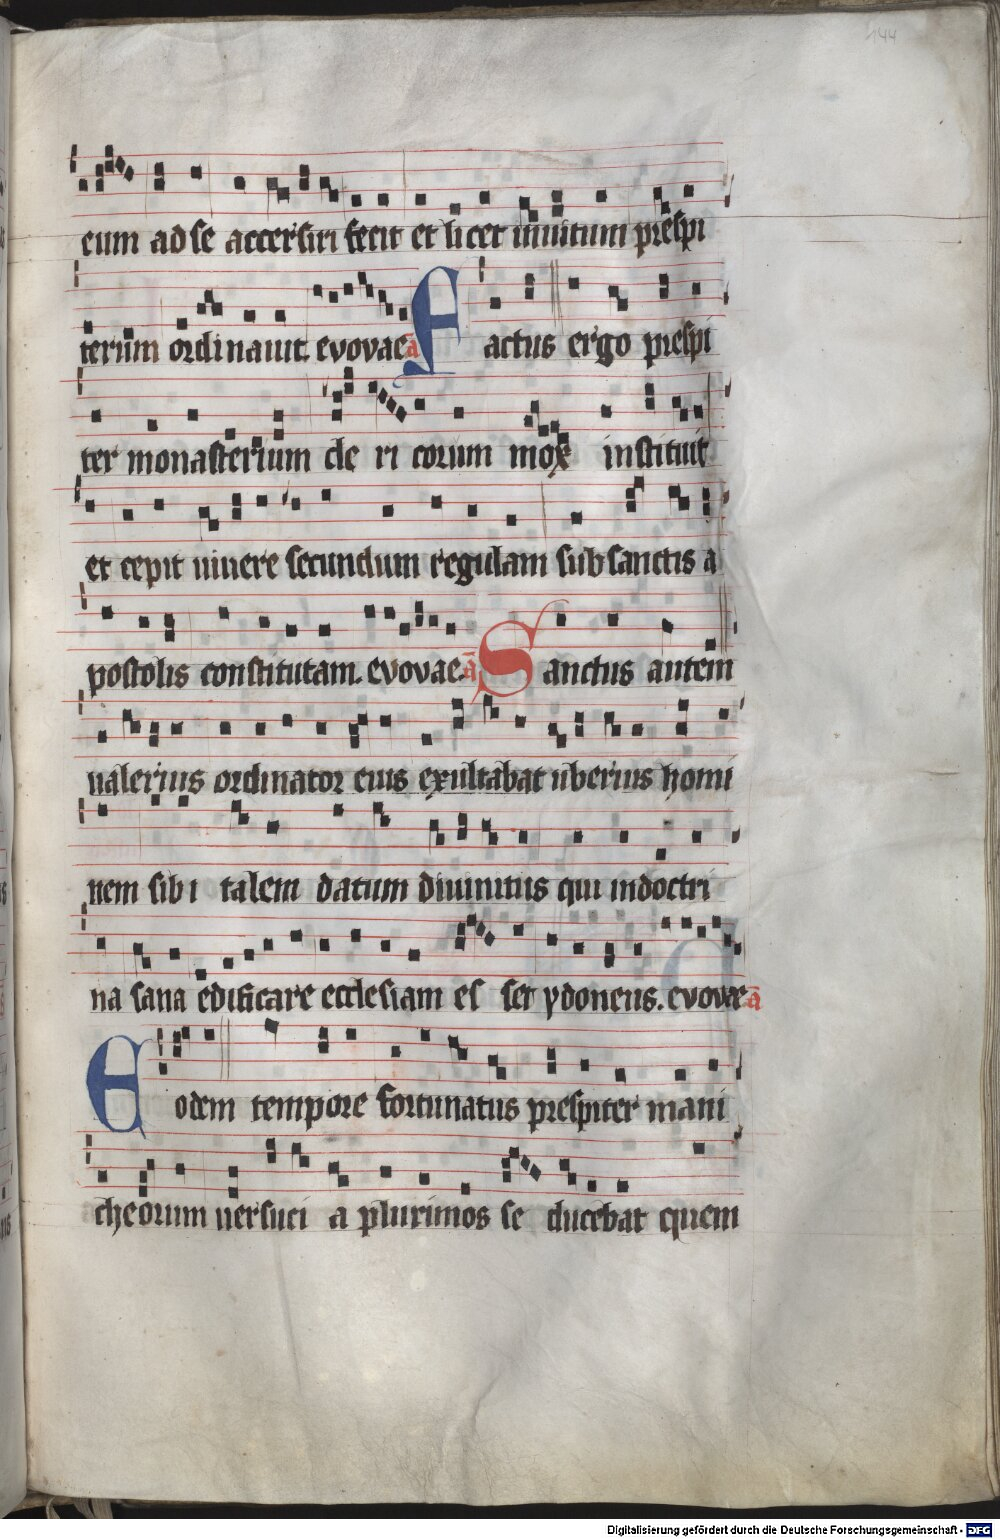 144
eum ad se accersiri fecit et licet inuitum prespi
terum ordinauit. evovae ā Factus ergo prespi
ter monasterium cle ri corum mox instituit
et cepit uiuere secundum regulam sub sanctis a
postolis constitutam. evovae. ā Sanctus autem
ualerius ordinator eius exultabat uberius homi
nem sibi talem datum diuinitus qui in doctri
na sana edificare ecclesiam es set ydoneus. evovae ā
Eodem tempore fortunatus prespiter mani
cheorum uersuci a plurimos se ducebat quem
Digitalisierung gefördert durch die Deutsche Forschungsgemeinschaft - DFG